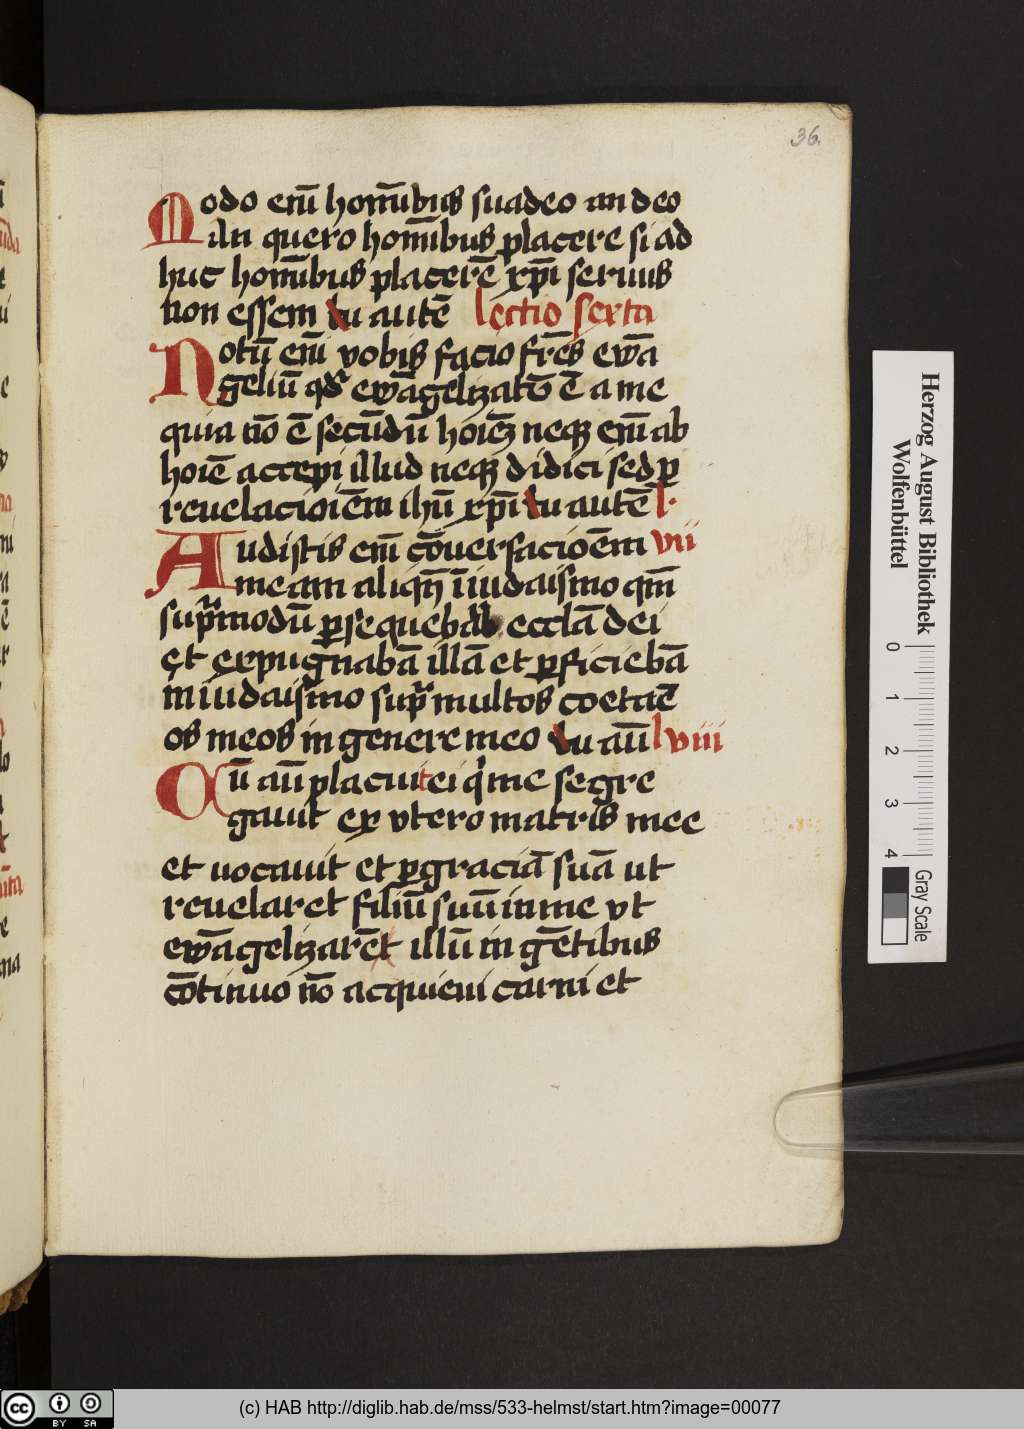 36.
Modo em̄ hom̄ibus suadeo an deo
aūt quero hom̄ibus placere si ad
huc hom̄ibus placerē xp̄i seruus
non essem tu autē lectio sexta
Notū em̄ vobis facio fr̄es ewā
geliū qd̛ ewāgelizatū ē a me
quia nō ē secūdū hoīez neqz em̄ ab
hoīe accepi illud neqz didici sed ꝑ
reuelacioīem ihū xp̄i tu autē l.
Audistis em̄ cōuersacioēm vii
meam aliqn̄ ī iudaismo qm̄
sup̄modū ꝑsequebā ecclā dei
et expugnabā illā et ꝑficiebā
in iudaismo sup̄ multos coetanē
os meos in genere meo tu aū l viii
Cū aū placuit ei q̇ me segre
gauit ex vtero matris mee
et uocauit et ꝑ graciā suā ut
reuelaret filiū suū in me vt
ewāgelizarēt illū in gētibus
cōtinuo nō acquieui carni et
Herzog August Bibliothek
Wolfenbüttel
0 1 2 3 4
Gray Scale
BY SA
(c) HAB http://diglib.hab.de/mss/533-helmst/start.htm?image=00077